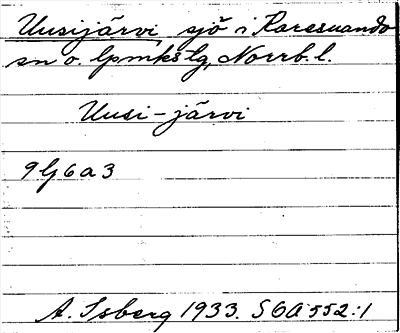 Uusijärvi, sjö i Karesuando
sn o. lpmkstg, Norrb. l.
Uusi-järvi
9lj6a3
A. Isberg 1933. S6A552:1